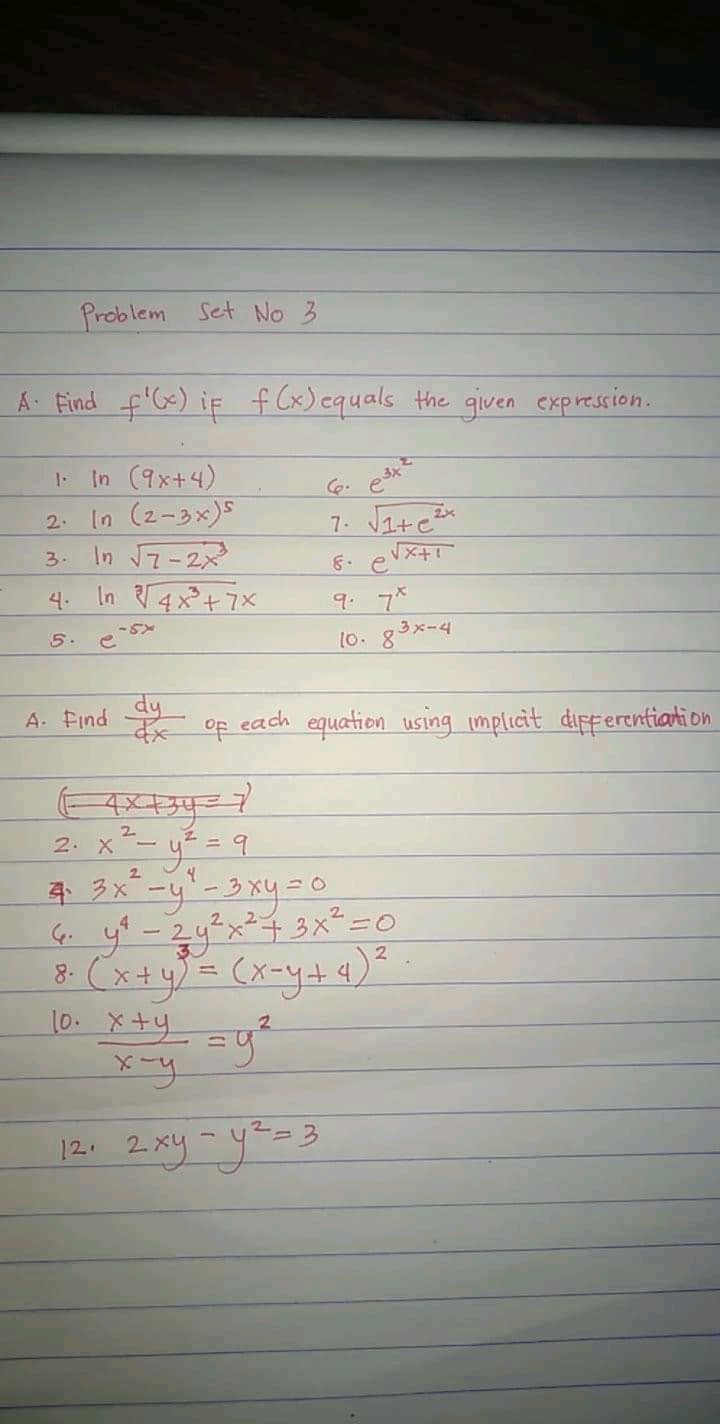 Problem Set No 3
A. Find f'(x) if f(x) equals the given expression.
1. ln (9x+4)
2. ln (2-3x)⁵
3. ln √7-2x³
4. ln ∛4x³+7x
5. e⁻⁵ˣ
6. e^3x²
7. √1+e²ˣ
8. e^√x+1
9. 7ˣ
10. 8^3x-4
A. Find dy/dx of each equation using implicit differentiation
2. x² - y² = 9
4. 3x² - y⁴ - 3xy = 0
6. y⁴ - 2y²x² + 3x² = 0
8. (x+y)³ = (x-y+4)².
10. x+y/x-y = y²
12. 2xy - y² = 3